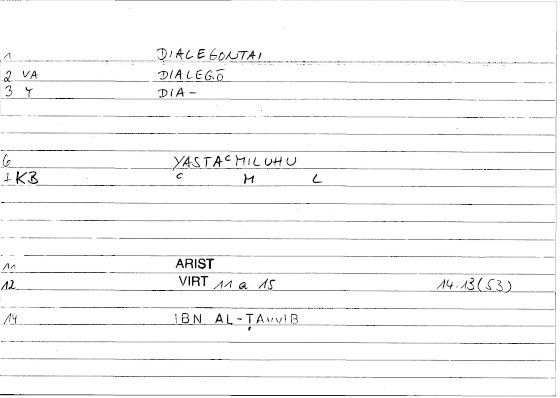 1 DIALEGONTAI
2 VA DIALEGŌ
3 Y DIA-
6 YASTAᶜMILUHU
1 KB ᶜ M L
11 ARIST
12 VIRT 11 a 15 14.13(53)
14 IBN AL-ṬAYYIB